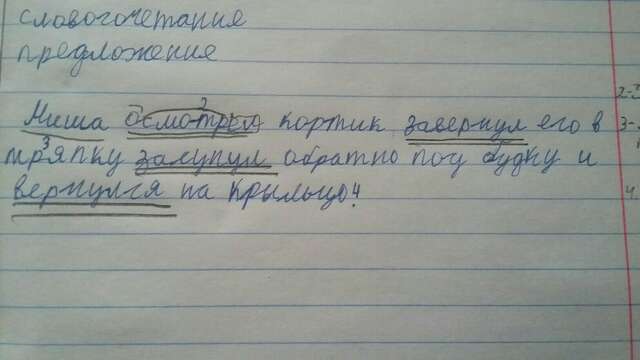 словосочетания
предложения
Миша осмотрел 2 кортик завернул его в
тряпку 3 засунул обратно под будку и
вернулся на крыльцо. 4
2-
3-
4.